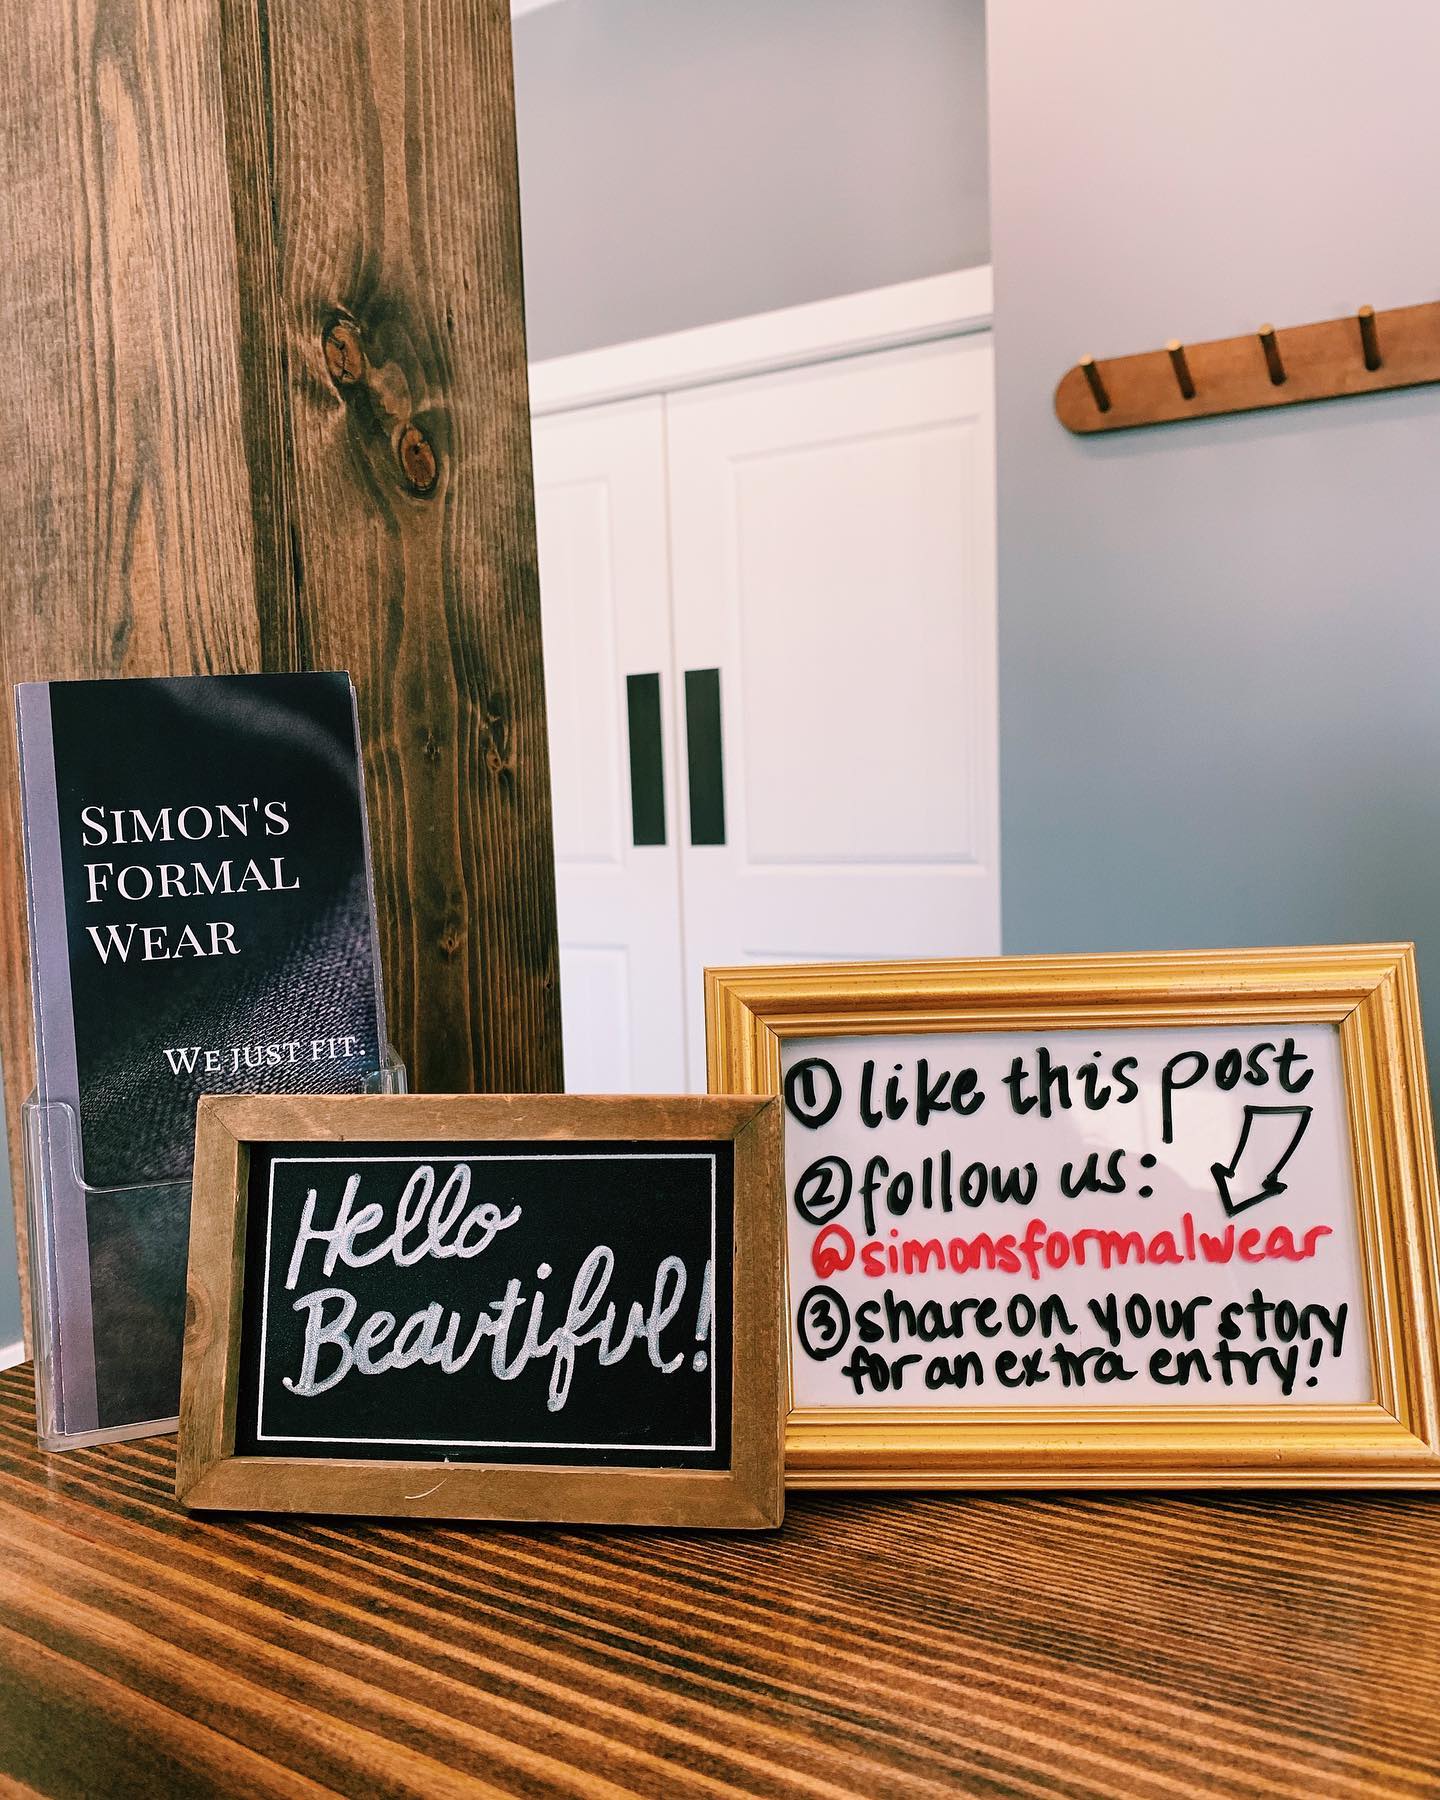 SIMON'S
FORMAL
WEAR
WE JUST FIT.
Hello
Beautiful!
① like this post
② follow us:
@simonsformalwear
③ share on your story
for an extra entry!